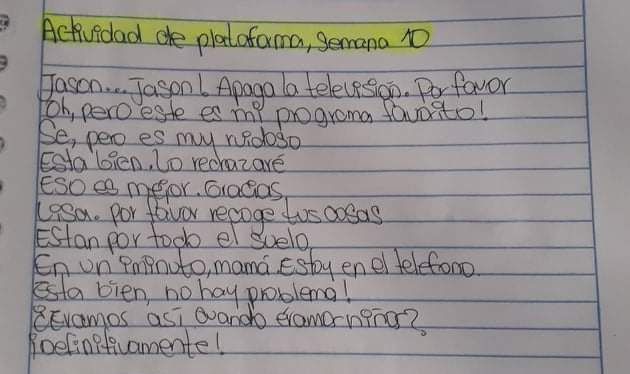 Actividad de plataforma, semana 10
Jason... Jason! Apaga la television. Por favor
Oh, pero este es mi programa favorito!
Se, pero es muy ruidoso
Esta bien. Lo rechazaré
Eso es mejor. Gracias
Lisa. por favor recoge tus cosas
Estan por todo el suelo
En un minuto, mamá. Estoy en el telefono.
Esta bien, no hay problema!
¿Eramos así cuando éramos niños?
¡Definitivamente!